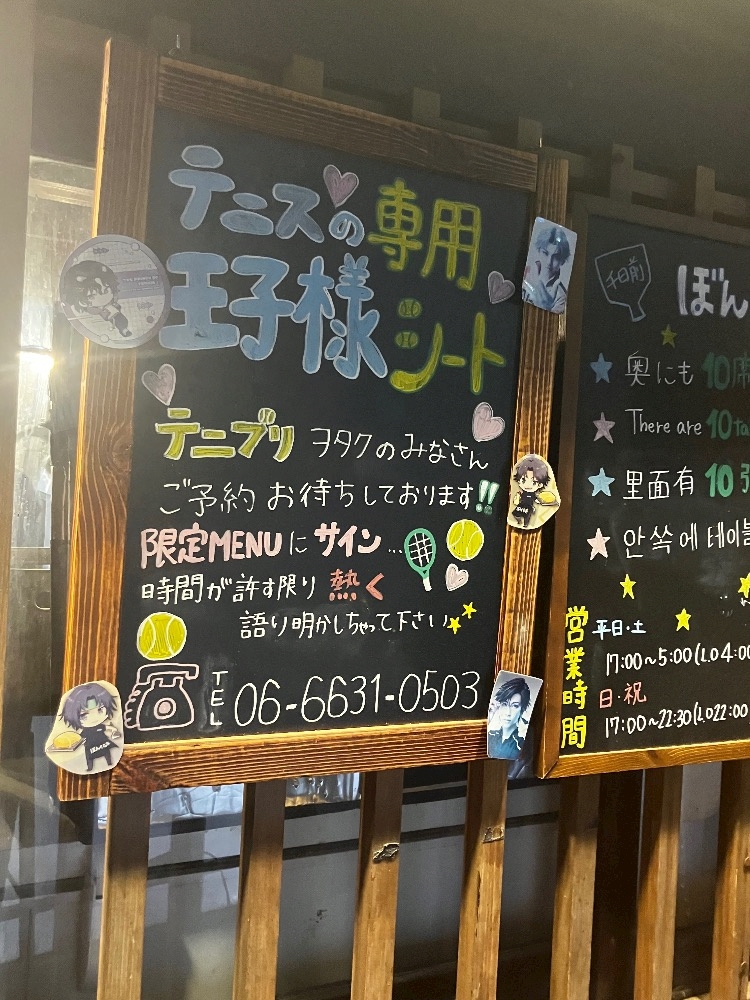 テニスの
王子様
専用
シート
テニプリ ヲタクのみなさん
ご予約 お待ちしております!!
限定MENUに サイン...
時間が許す限り 熱く
語り明かしちゃって下さい
TEL 06-6631-0503
千日前
ぼん
★ 奥にも 10席
★ There are 10ta
★ 里面有 10张
★ 안쪽에 테이블
営業時間
平日・土
17:00~5:00(L.O 4:00
日・祝
17:00~22:30(L.O 22:00